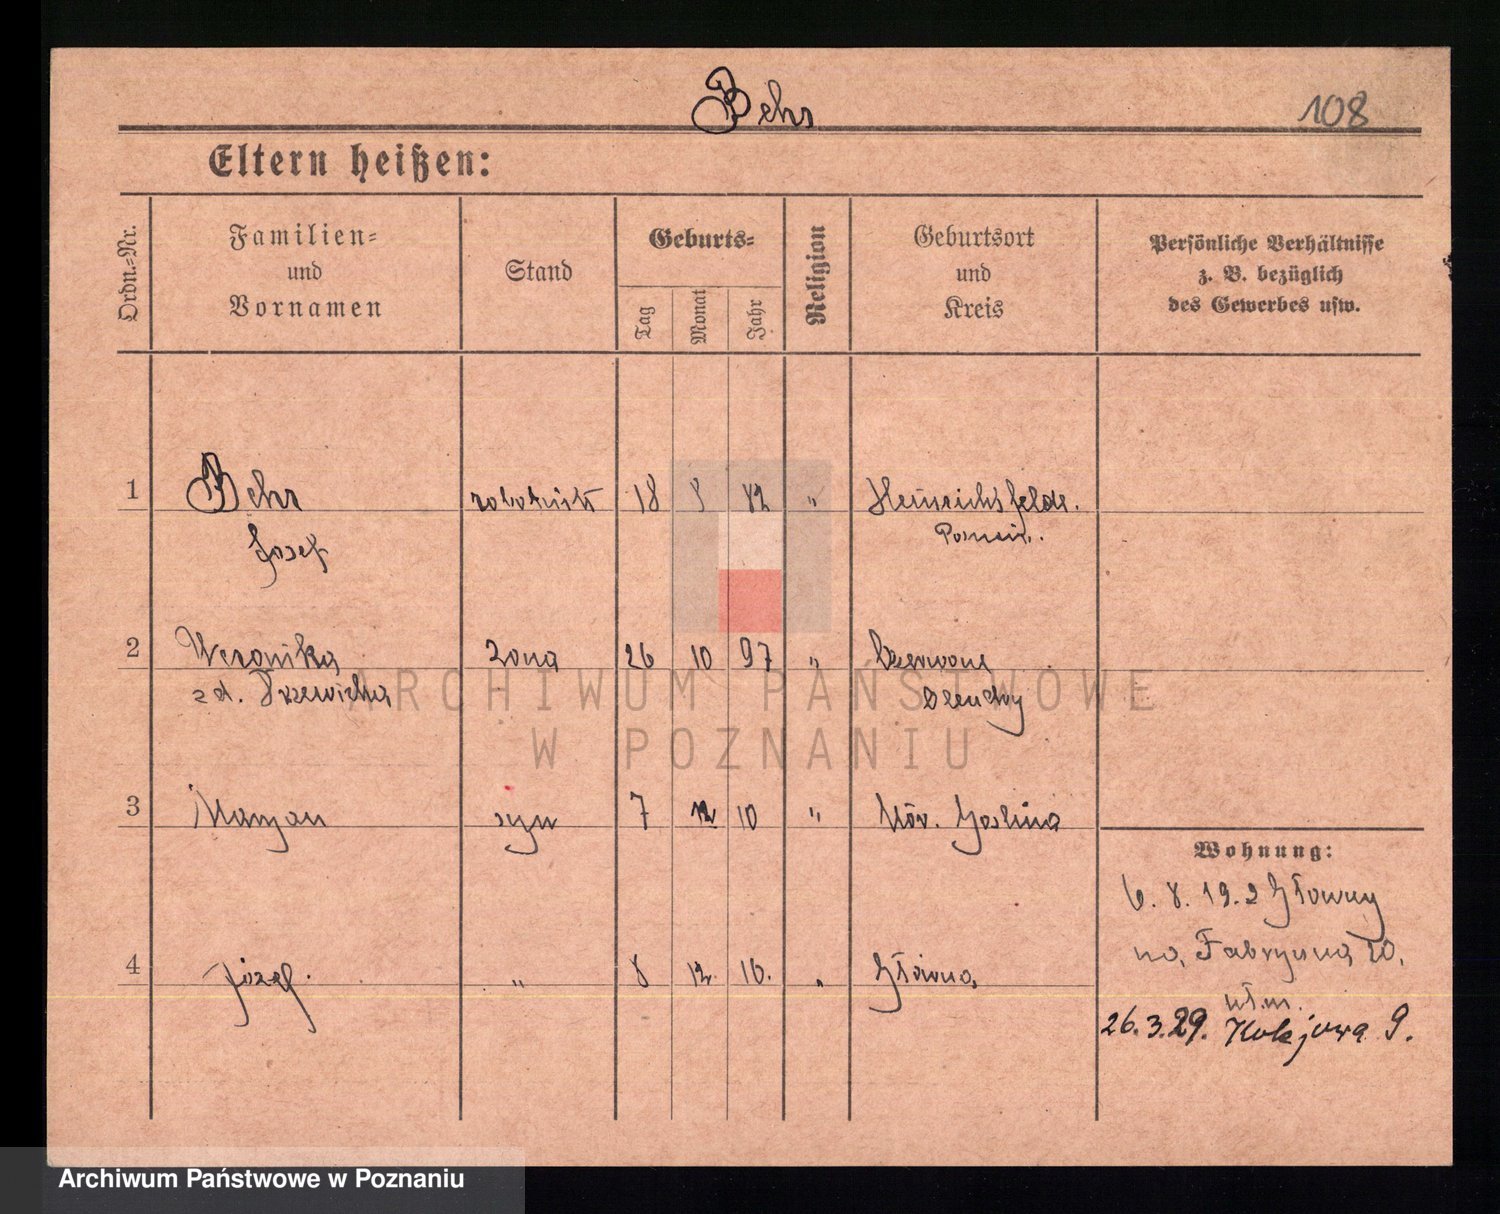 Behr
108
Eltern heißen:
Ordn.-Nr.
Familien-
und
Vornamen
Stand
Geburts-
Tag
Monat
Jahr
Religion
Geburtsort
und
Kreis
Persönliche Verhältnisse
z. B. bezüglich
des Gewerbes usw.
1 Behr robotnik 18 8 82 " Heinrichsfelde.
Josef
2 Weronika żona 26 10 97 " Czerwone
zd.
3 Maryan syn 7 12 10 " Goslina
4 Józef. " 8 12. 16. " Główna
Wohnung:
6. 8. 19.2 Główny
na, Fabryczna 20.
wł.m.
26.3.29. Kolejowa 9.
ARCHIWUM PAŃSTWOWE
W POZNANIU
Archiwum Państwowe w Poznaniu